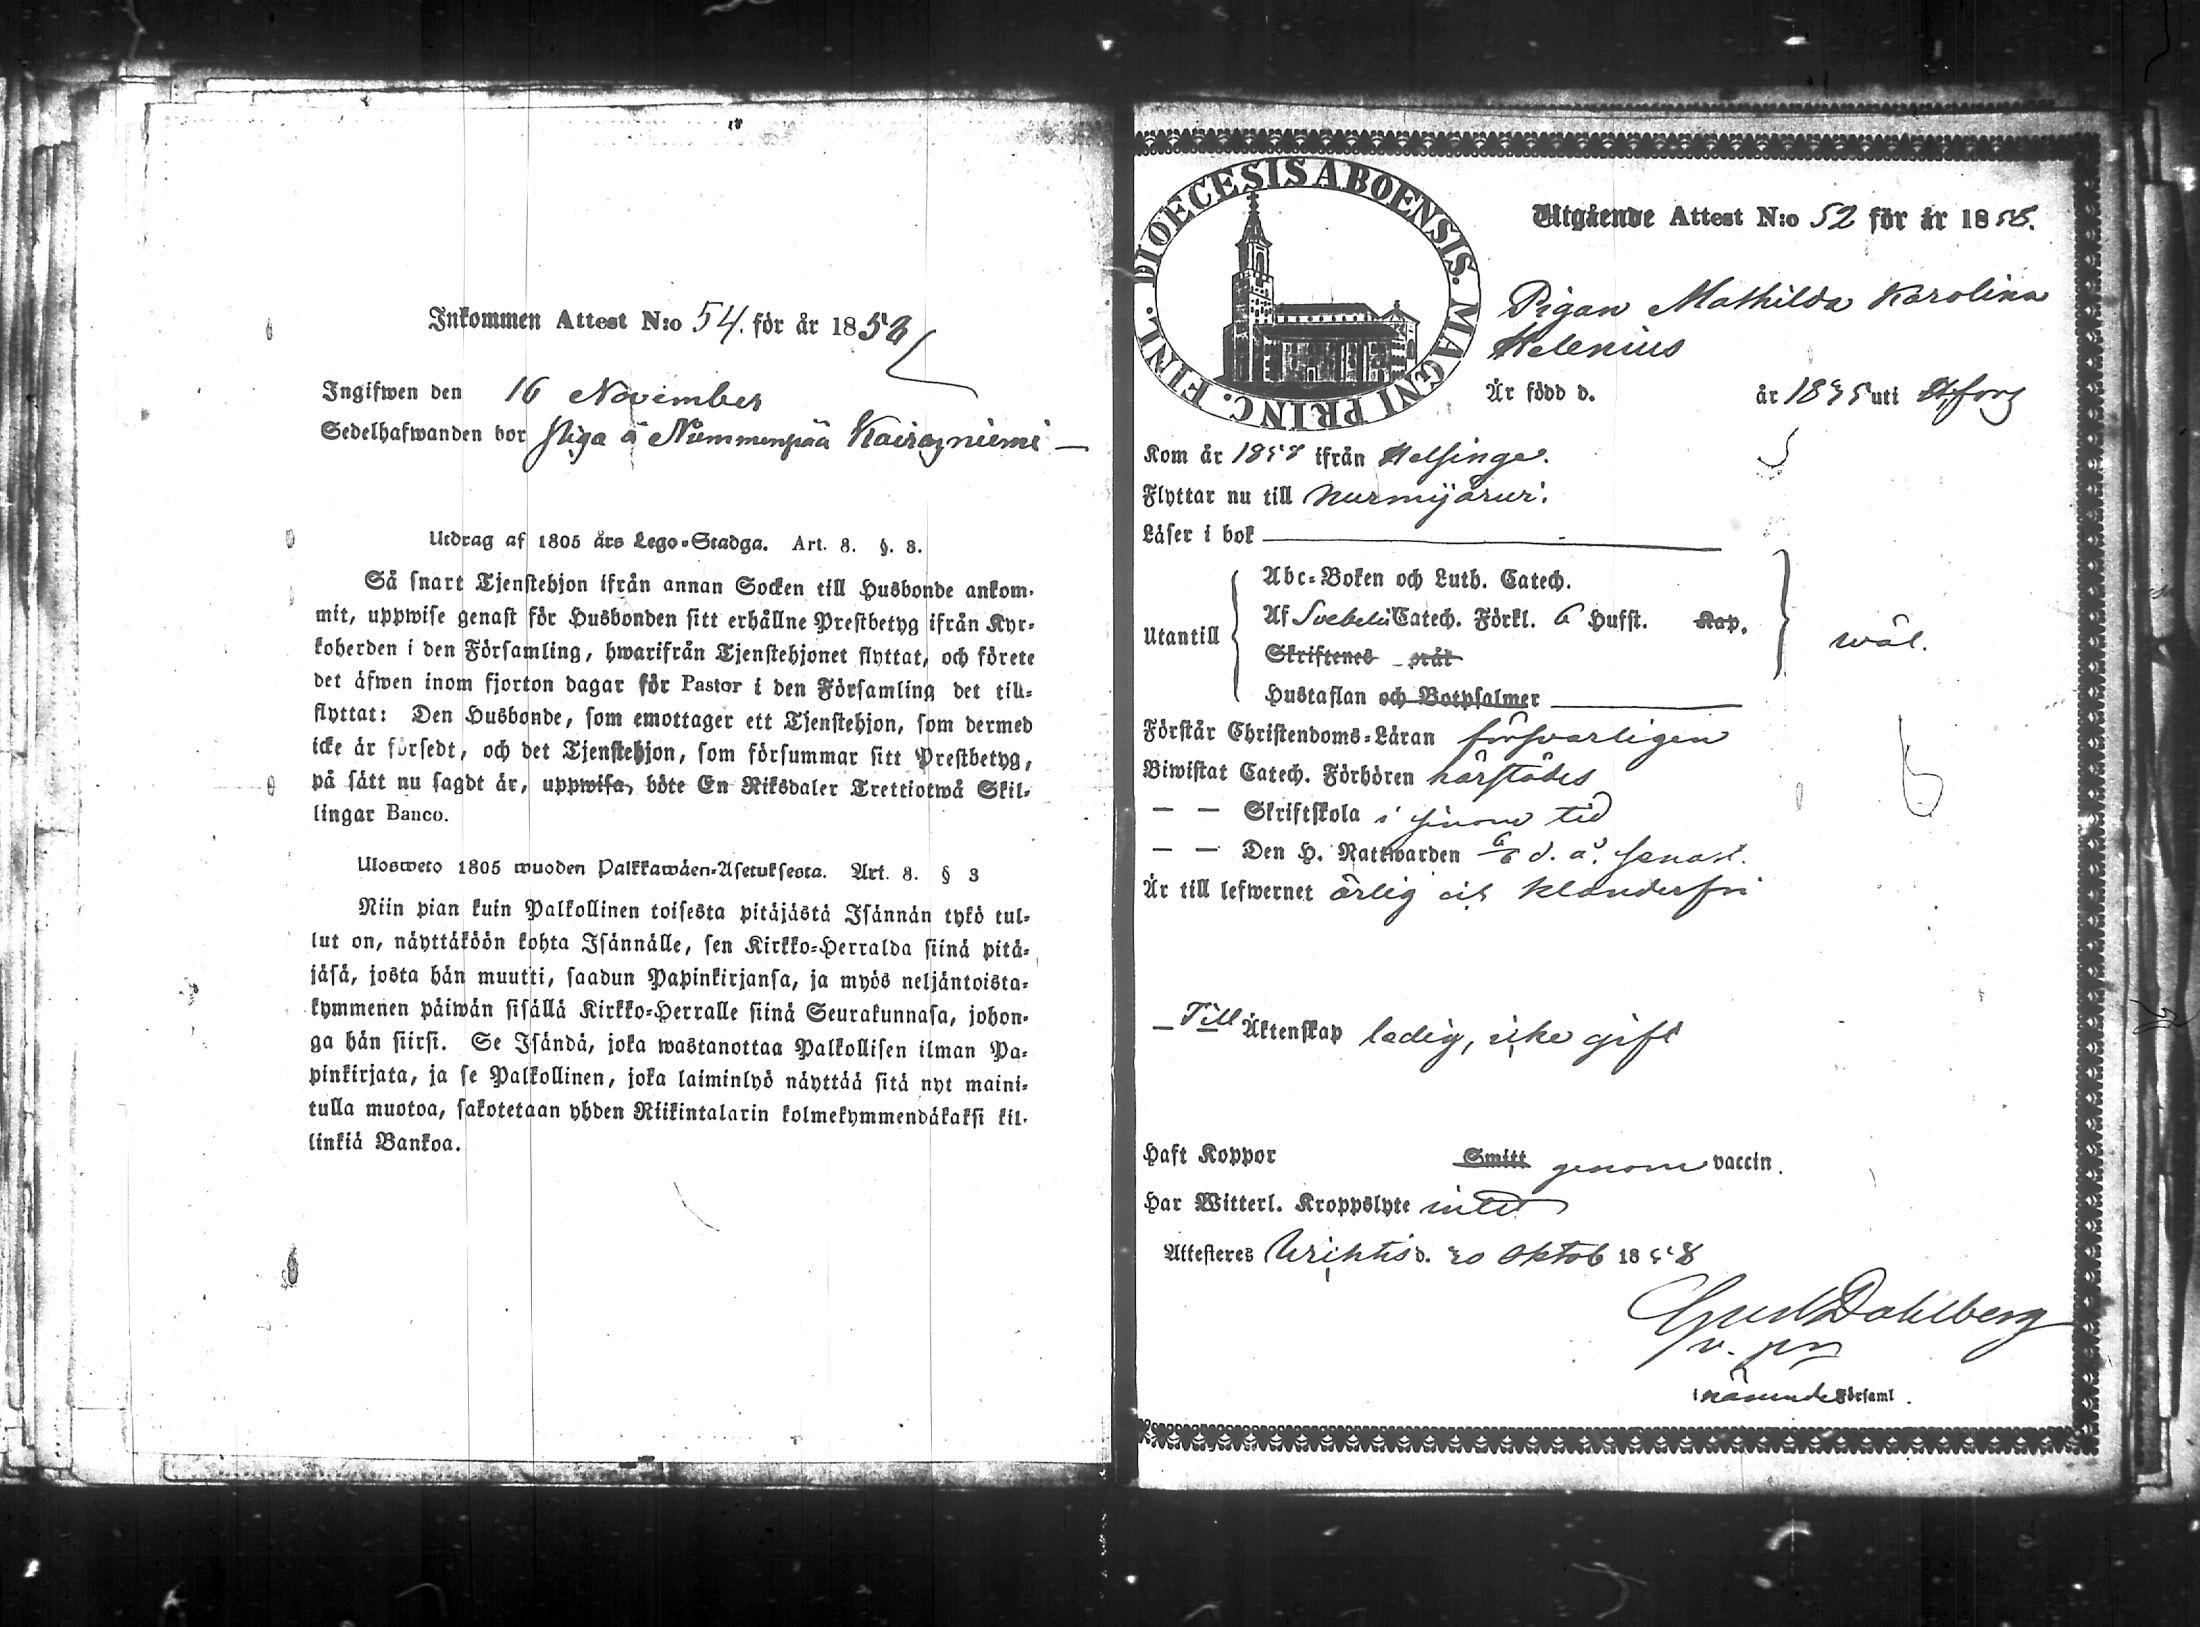 Inkommen Attest N:o 54. för år 1858
Ingifwen den 16 November
Sedelhafwanden bor piga å Nummenpää Kairaniemi —
Utdrag af 1805 års Lego-Stadga. Art. 8. §. 3.
Så snart Tjenstehjon ifrån annan Socken till Husbonde ankom-
mit, uppwise genast för Husbonden sitt erhållne Prestbetyg ifrån Kyr-
koherden i den Församling, hwarifrån Tjenstehjonet flyttat, och förete
det äfwen inom fjorton dagar för Pastor i den Församling det till-
flyttat: Den Husbonde, som emottager ett Tjenstehjon, som dermed
icke är försedt, och det Tjenstehjon, som försummar sitt Prestbetyg,
på sätt nu sagdt är, uppwisa, böte En Riksdaler Trettiotwå Skil-
lingar Banco.
Ulosweto 1805 wuoden Palkkawäen-Asetuksesta. Art. 8. § 3
Niin pian kuin Palkollinen toisesta pitäjästä Isännän tykö tul-
lut on, näyttäköön kohta Isännälle, sen Kirkko-Herralda siinä pitä-
jäsä, josta hän muutti, saadun Papinkirjansa, ja myös neljäntoista-
kymmenen päiwän sisällä Kirkko-Herralle siinä Seurakunnasa, johon-
ga hän siirsi. Se Isändä, joka wastanottaa Palkollisen ilman Pa-
pinkirjata, ja se Palkollinen, joka laiminlyö näyttää sitä nyt maini-
tulla muotoa, sakotetaan yhden Riikintalarin kolmekymmendäkaksi kil-
linkiä Bankoa.
DIOECESIS ABOENSIS. MAGNI PRINC. FINL.
Utgående Attest N:o 52 för år 1858.
Pigan Mathilda Karolina
Helenius
Är född d. år 1835 uti Hfors
Kom år 1858 ifrån Helsinge.
Flyttar nu till Nurmijärvi.
Läser i bok
Utantill
Abc-Boken och Luth. Catech.
Af Svebelii Catech. Förkl. 6 Hufst. Kap.
Skriftenes språk
Hustaflan och Botpsalmer
wäl.
Förstår Christendoms-Läran försvarligen
Biwistat Catech. Förhören närstädes
— — Skriftskola i sinom tid
— — Den H. Nattwarden d. å. senast.
Är till lefwernet ärlig och klanderfri
— Till Äktenskap ledig, icke gift
Haft Koppor Smitt genom vaccin.
Har Witterl. Kroppslyte intet
Attesteres Wichtis d. 20 Oktob 1858
Gust Dahlberg
v. pr
i närvarande Församl.